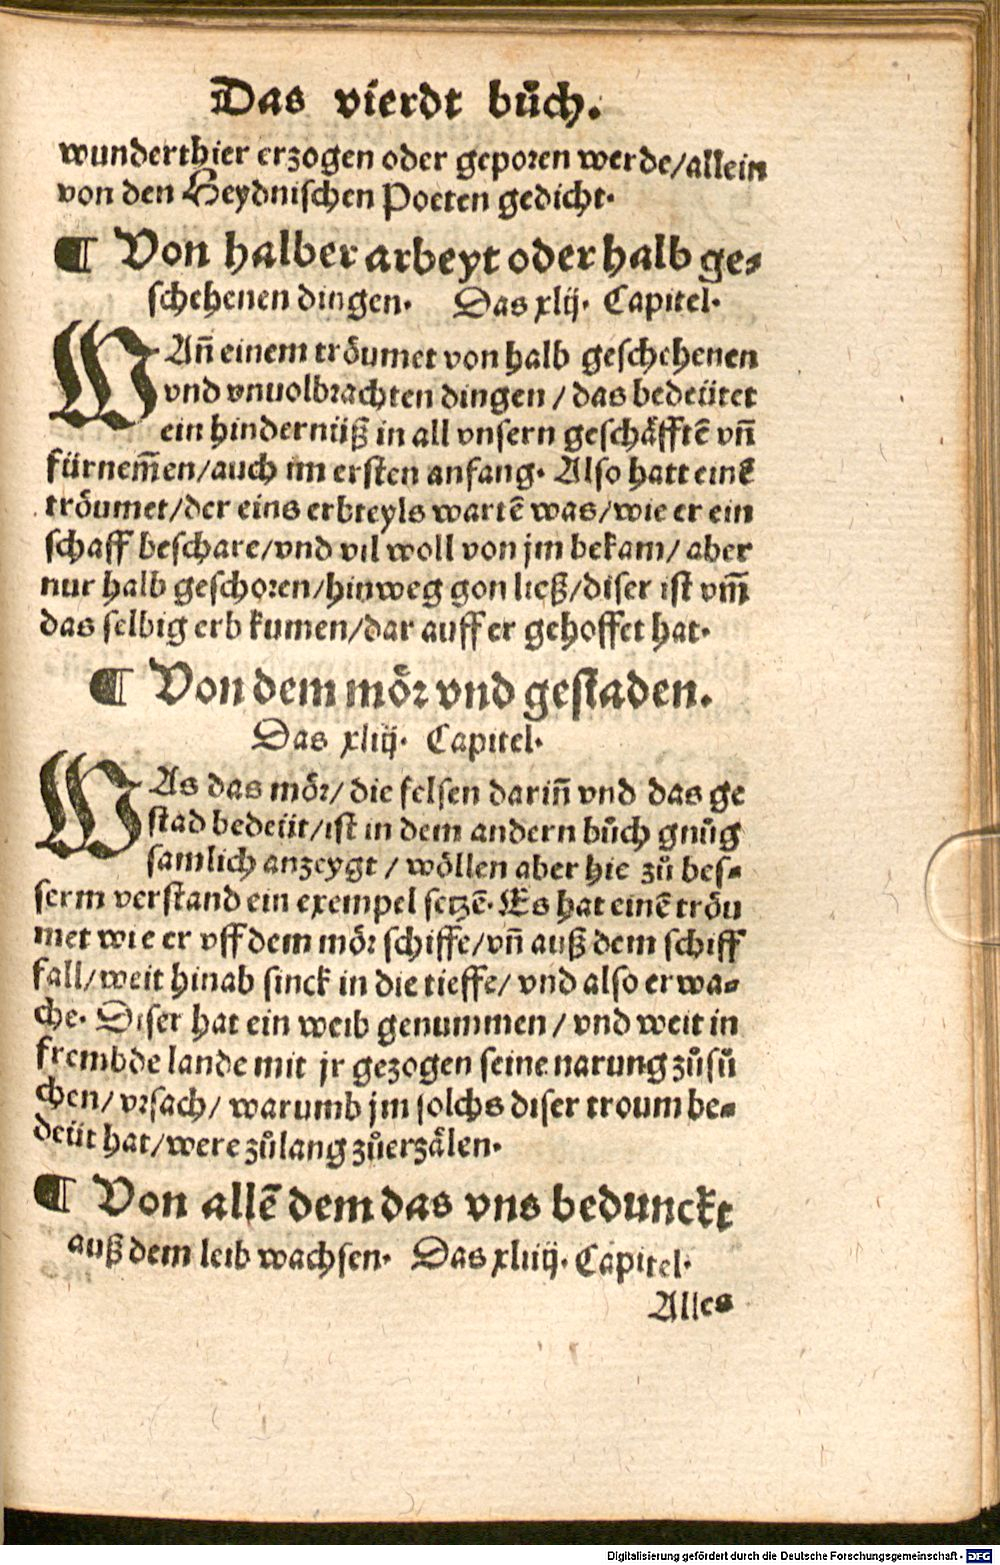 Das vierdt bůch.
wunderthier erzogen oder geporen werde/allein
von den Heydnischen Poeten gedicht.
¶ Von halber arbeyt oder halb ge⸗
schehenen dingen. Das xlij. Capitel.
WAñ einem tröumet von halb geschehenen
vnd vnuolbrachten dingen / das bedeütet
ein hindernüß in all vnsern geschäfftē vñ
fürnem̄en/auch im ersten anfang. Also hatt einē
tröumet/der eins erbteyls wartē was/wie er ein
schaff beschare/vnd vil woll von jm bekam/ aber
nur halb geschoren/hinweg gon ließ/diser ist vm̄
das selbig erb kumen/dar auff er gehoffet hat.
¶ Von dem mör vnd gestaden.
Das xliij. Capitel.
WAs das mör/ die felsen dariñ vnd das ge
stad bedeüt/ist in dem andern bůch gnůg
samlich anzeygt / wöllen aber hie zů bes⸗
serm verstand ein exempel setzē. Es hat einē tröu
met wie er vff dem mör schiffe/vñ auß dem schiff
fall/weit hinab sinck in die tieffe/ vnd also erwa⸗
che. Diser hat ein weib genummen / vnd weit in
frembde lande mit jr gezogen seine narung zůsů
chen/ vrsach/ warumb jm solchs diser troum be⸗
deüt hat/were zůlang zůerzälen.
¶ Von allē dem das vns bedunckt
auß dem leib wachsen. Das xliiij. Capitel.
Alles
Digitalisierung gefördert durch die Deutsche Forschungsgemeinschaft - DFG